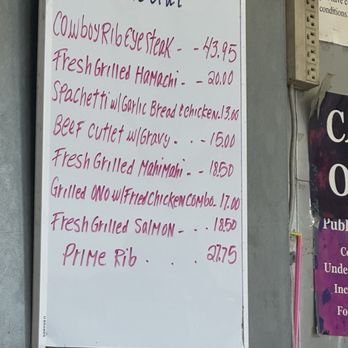 Cowboy Rib Eye Steak - - 43.95
Fresh Grilled Hamachi - - 20.00
Spaghetti w/Garlic Bread & Chicken - 13.00
Beef Cutlet w/Gravy . - - 15.00
Fresh Grilled Mahimahi - - 18.50
Grilled Ono w/Fried Chicken Combo.. 17.00
Fresh Grilled Salmon - - . 18.50
Prime Rib . . . . 27.75
conditions
Publ
Unde
Inc
Fo